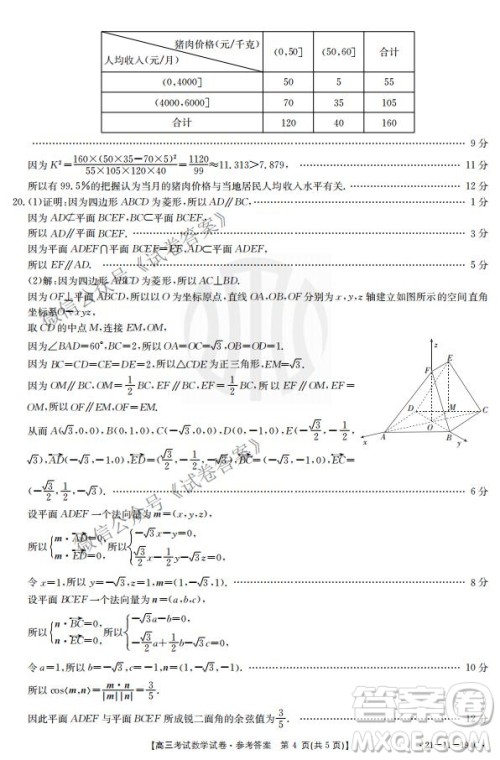 猪肉价格(元/千克)
人均收入(元/月)
(0,50] (50,60] 合计
(0,4000] 50 5 55
(4000,6000] 70 35 105
合计 120 40 160
9分
因为K²=160×(50×35−70×5)²/(55×105×120×40)=1120/99≈11.313>7.879, 11分
所以有99.5%的把握认为当月的猪肉价格与当地居民人均收入水平有关. 12分
20.(1)证明:因为四边形ABCD为菱形,所以AD∥BC, 1分
因为AD⊄平面BCEF,BC⊂平面BCEF,
所以AD∥平面BCEF. 3分
因为平面ADEF∩平面BCEF=EF,AD⊂平面ADEF,
所以EF∥AD. 5分
(2)解:因为四边形ABCD为菱形,所以AC⊥BD.
因为OF⊥平面ABCD,所以以O为坐标原点,直线OA,OB,OF分别为x,y,z轴建立如图所示的空间直角
坐标系O−xyz,
取CD的中点M,连接EM,OM.
因为∠BAD=60°,BC=2,所以OA=OC=√3,OB=OD=1.
因为BC=CD=CE=DE=2,所以△CDE为正三角形,EM=√3.
因为OM∥BC,OM=1/2BC,EF∥BC,EF=1/2BC,所以OM∥EF,OM=EF,
所以四边形OFEM为平行四边形
从而A(√3,0,0),B(0,1,0),C(−√3,0,0),D(0,−1,0),E(−√3/2,1/2,
√3),AD=(−√3,−1,0),ED=(√3/2,−1/2... BC=(−√3,−1,0),EC=
(−√3/2,1/2... 6分
设平面ADEF一个法向量为m=(x,y,z),
所以{m·AD=0, m·ED=0, 所以{−√3x−y=0,
令x=1,所以y=−√3,z=1,m=(1,−√3,1). 8分
设平面BCEF一个法向量为n=(a,b,c),
所以{n·BC=0, n·EC=0, 所以{
令a=1,所以 10分
所以cos⟨m,n⟩=m·n/|m||n|=3/5.
因此平面ADEF与平面BCEF所成锐二面角的余弦值为3/5. 12分
z
F E
D M C
O
A B
x y
【高三考试数学试卷·参考答案 第4页(共5页)】
微信公众号《试卷答案》
微信公众号《试卷答案》